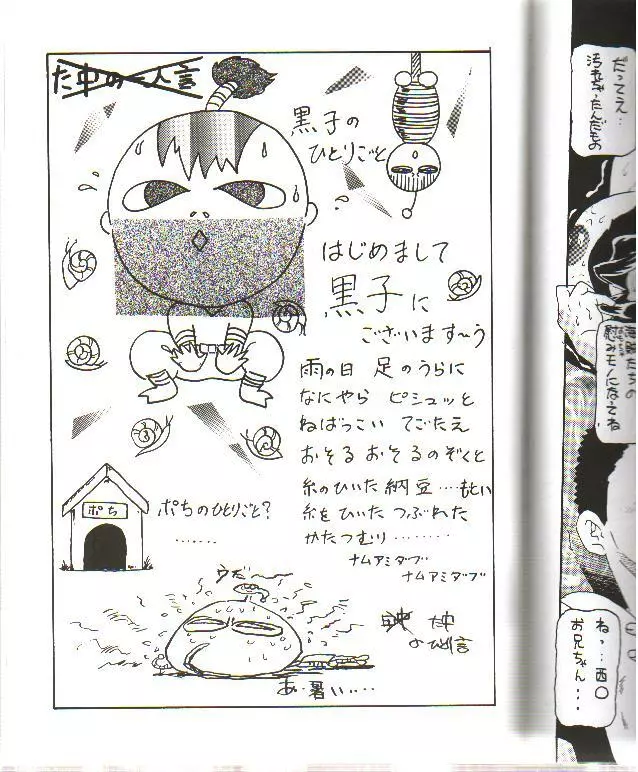 た中の一人言
黒子の
ひとりごと
はじめまして
黒子に
ございます〜う
雨の日 足のうらに
なにやら ピシュッと
ねばっこい てごたえ
おそる おそるのぞくと
糸のひいた納豆……もとい
糸をひいた つぶれた
かたつむり………
ナムアミダブ
ナムアミダブ
ポち
ポちのひとりごと?
……
うだ〜
た中
の
あ・暑い‥‥
だってえ…
汚れちゃったんだもの
たちの
慰みモノになってね
ねっ…西〇
お兄ちゃん…